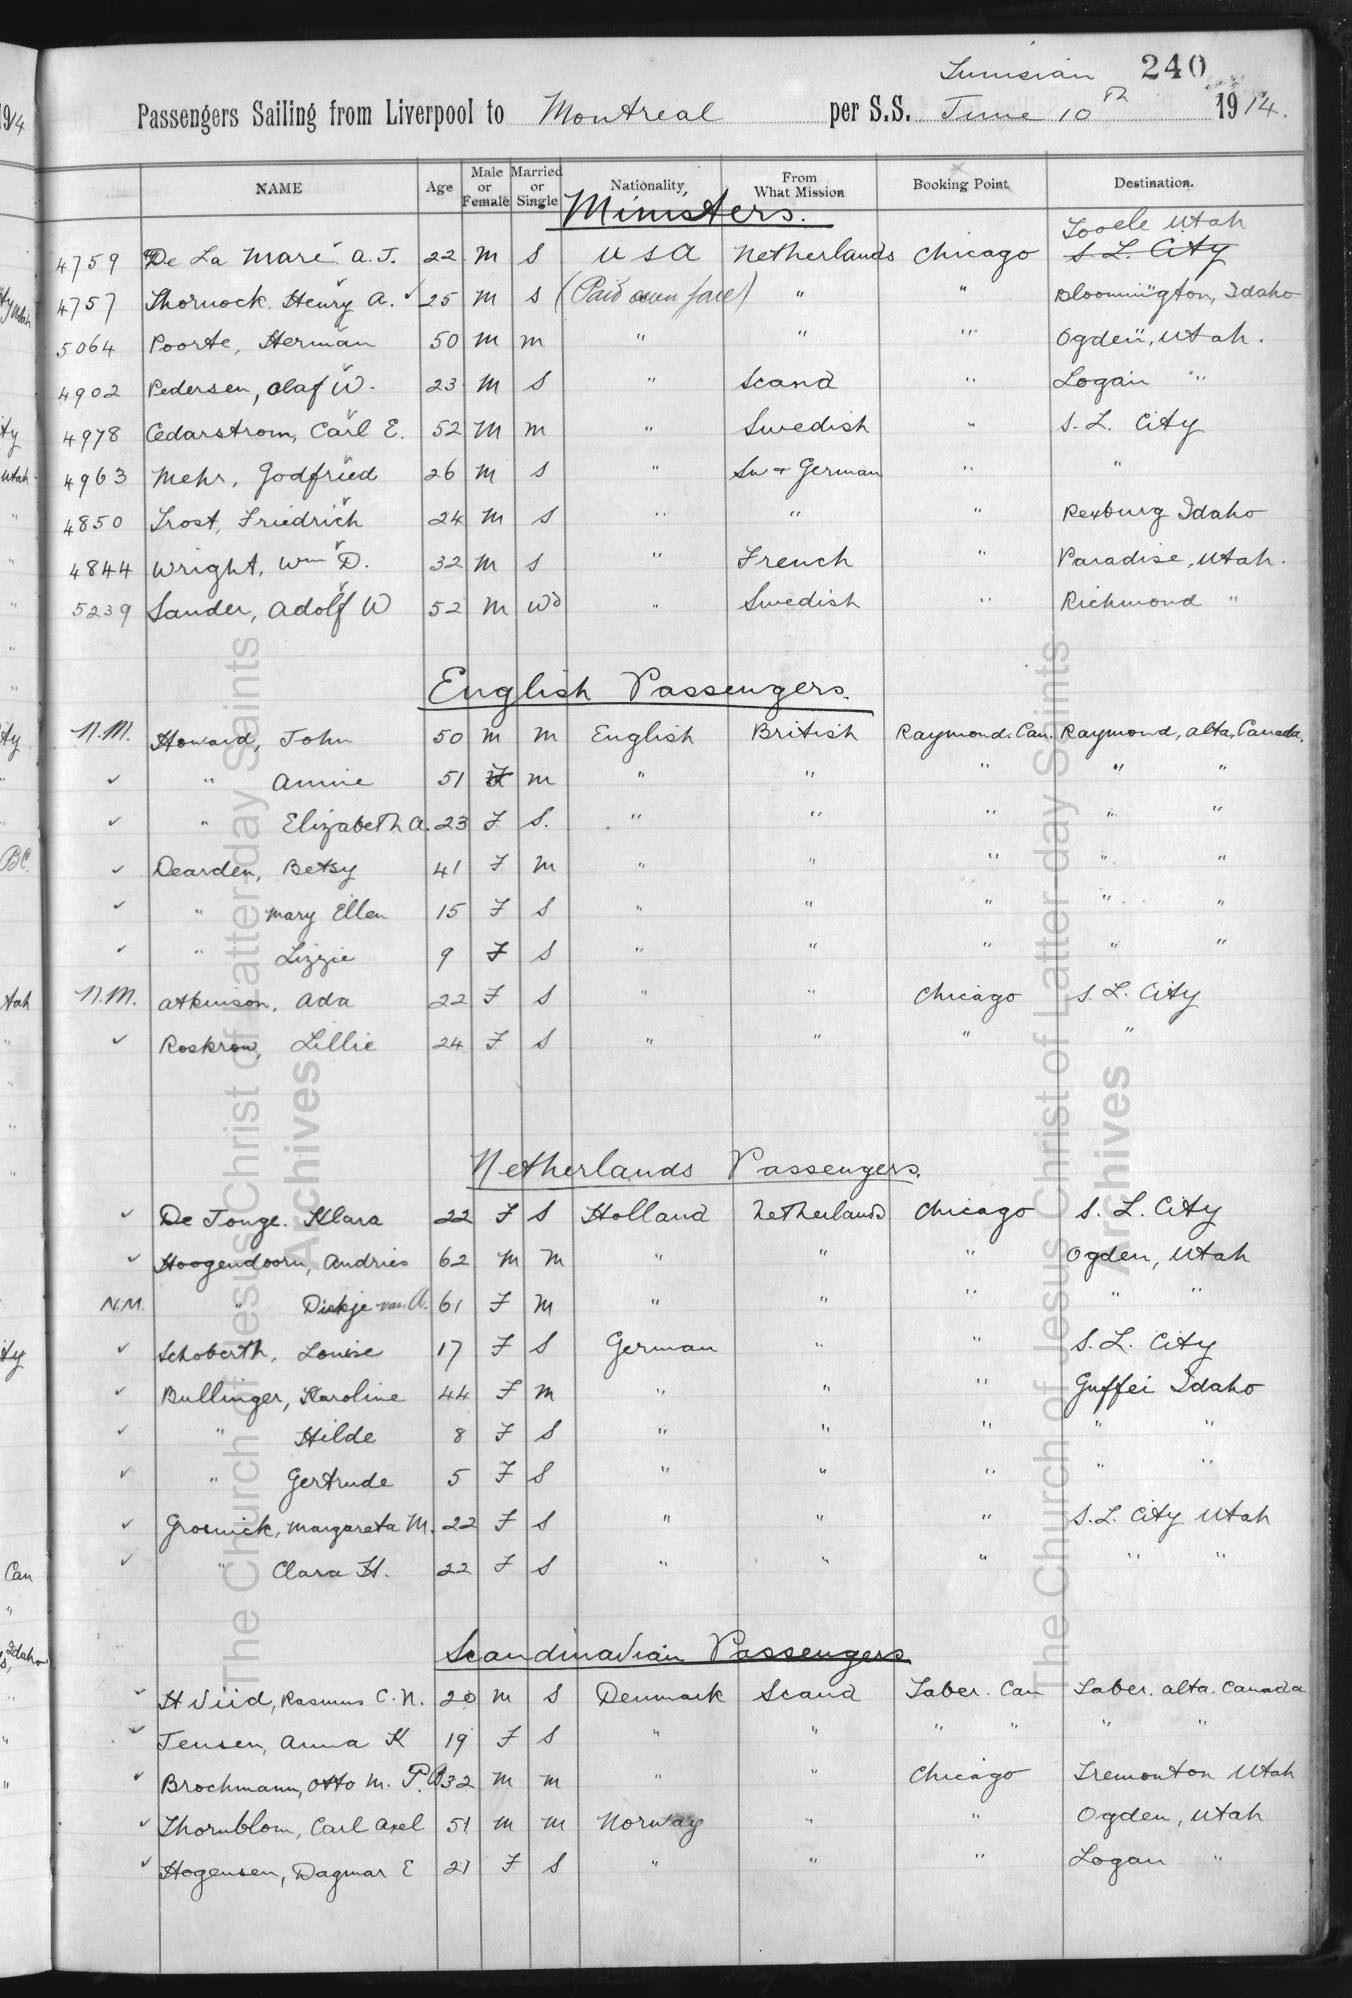 Tunisian 240
Passengers Sailing from Liverpool to Montreal per S.S. June 10th 1914.
NAME Age Male or Female Married or Single Nationality, From What Mission Booking Point Destination.
Ministers.
Tooele Utah
4759 De La Mare A. J. 22 M S U S A Netherlands Chicago S. L. City
4757 Thornock Henry A. ✓ 25 M S (Paid own fare) " " Bloomington, Idaho
5064 Poorte, Herman 50 M M " " " Ogden, Utah.
4902 Pedersen, Olaf W. 23 M S " Scand " Logan "
4978 Cedarstrom, Carl E. 52 M M " Swedish " S. L. City
4963 Mehr, Godfried 26 M S " Sw + German " "
4850 Trost, Friedrich 24 M S " " " Rexburg Idaho
4844 Wright, Wm D. 32 M S " French " Paradise, Utah.
5239 Sander, Adolf W 52 M Wd " Swedish " Richmond "
English Passengers.
N.M. Howard, John 50 M M English British Raymond. Can. Raymond, Alta, Canada.
✓ " Annie 51 F M " " " " "
✓ " Elizabeth A. 23 F S. " " " " "
✓ Dearden, Betsy 41 F M " " " " "
✓ " Mary Ellen 15 F S " " " " "
✓ " Lizzie 9 F S " " " " "
N.M. Atkinson, Ada 22 F S " " Chicago S. L. City
✓ Roskrow, Lillie 24 F S " " " "
Netherlands Passengers.
✓ De Jonge. Klara 22 F S Holland Netherlands Chicago S. L. City
✓ Hoogendoorn, Andries 62 M M " " " Ogden, Utah
N.M. " Diekje van A. 61 F M " " " " "
✓ Schoberth, Louise 17 F S German " " S. L. City
✓ Bullinger, Karoline 44 F M " " " Guffei Idaho
✓ " Hilde 8 F S " " " " "
✓ " Gertrude 5 F S " " " " "
✓ Grosnick, Margareta M. 22 F S " " " S. L. City Utah
✓ " Clara H. 22 F S " " " " "
Scandinavian Passengers
✓ Hviid, Rasmus C. N. 20 M S Denmark Scand Taber. Can Taber. Alta. Canada
✓ Jensen, Anna K 19 F S " " " " " "
✓ Brochmann, Otto M. P. 32 M M " " Chicago Tremonton Utah
✓ Thornblom, Carl Axel 51 M M Norway " " Ogden, Utah
✓ Hogensen, Dagmar E 21 F S " " " Logan "
The Church of Jesus Christ of Latter-day Saints
Archives
The Church of Jesus Christ of Latter-day Saints
Archives